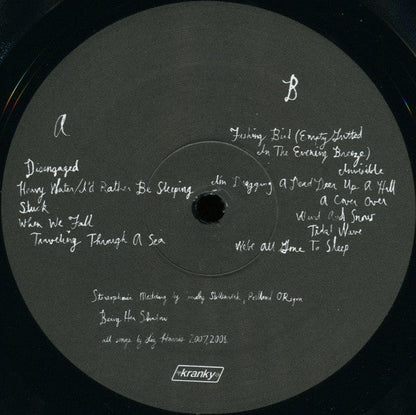 A
Disengaged
Heavy Water/I'd Rather Be Sleeping
Stuck
When We Fall
Traveling Through A Sea
B
Fishing Bird (Empty Gutted
In The Evening Breeze)
Invisible
I'm Dragging A Dead Deer Up A Hill
A Cover Over
Wind And Snow
Tidal Wave
We've All Gone To Sleep
Stereophonic Mastering by Timothy Stollenwerk, Portland ORegon
Being Her Shadow
all songs by Liz Harris 2007, 2008
kranky